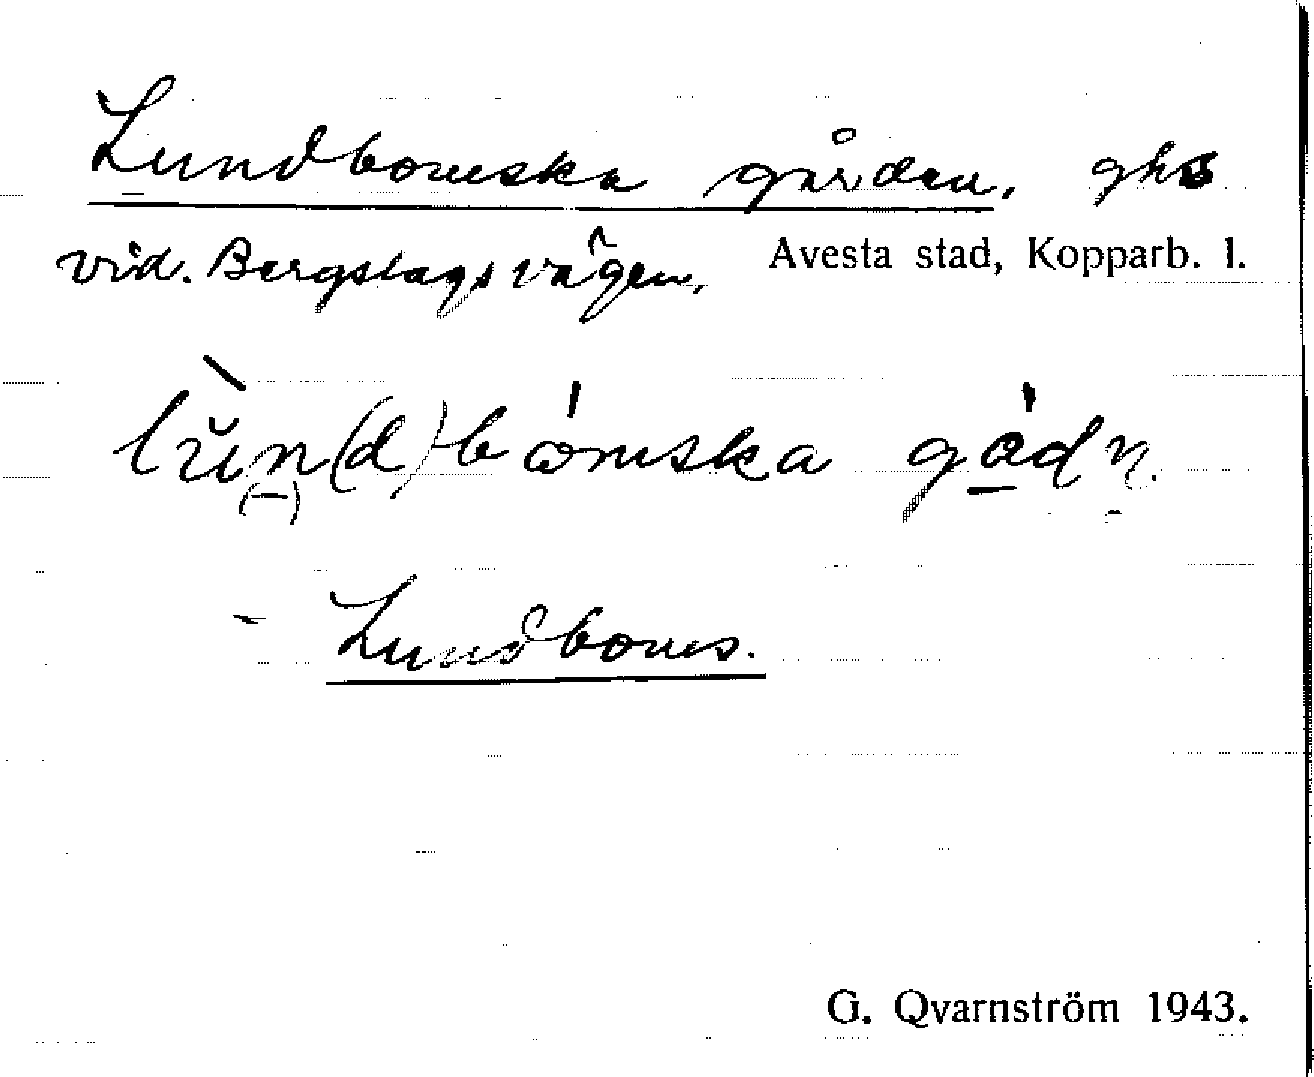 Lundbomska gården, ghs
vid. Bergslagsvägen, Avesta stad, Kopparb. l.
lun(d)bomska gådn.
- Lundboms.
G. Qvarnström 1943.